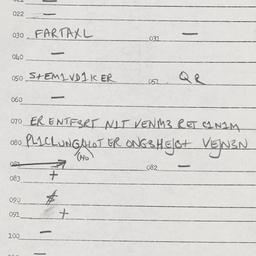 022 —
030 FARTAXL 031 —
040 —
050 S+EM1VD1KER 051 QR
060 —
070 ER ENTF3RT N1T VENM3 RET C1N1M
080 PL1CLUNG ALOT ER ONG3HEJO+ VEJN3N
NO
081 082 —
083 +
090 $
091 +
100 —